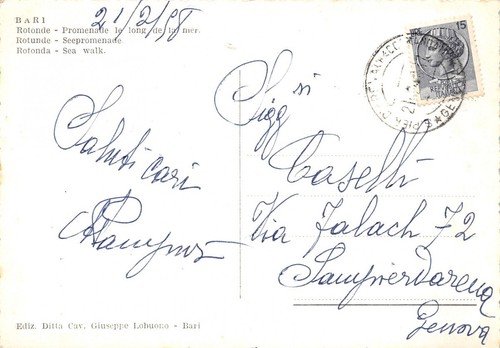 BARI
21/2/58
Rotonde - Promenade le long de la mer.
Rotunde - Seepromenade.
Rotonda - Sea walk.
15
Saluti cari
Sigg si
Caselli
Via Jalach 72
Sampierdarena
Genova
Ediz. Ditta Cav. Giuseppe Lobuono - Bari